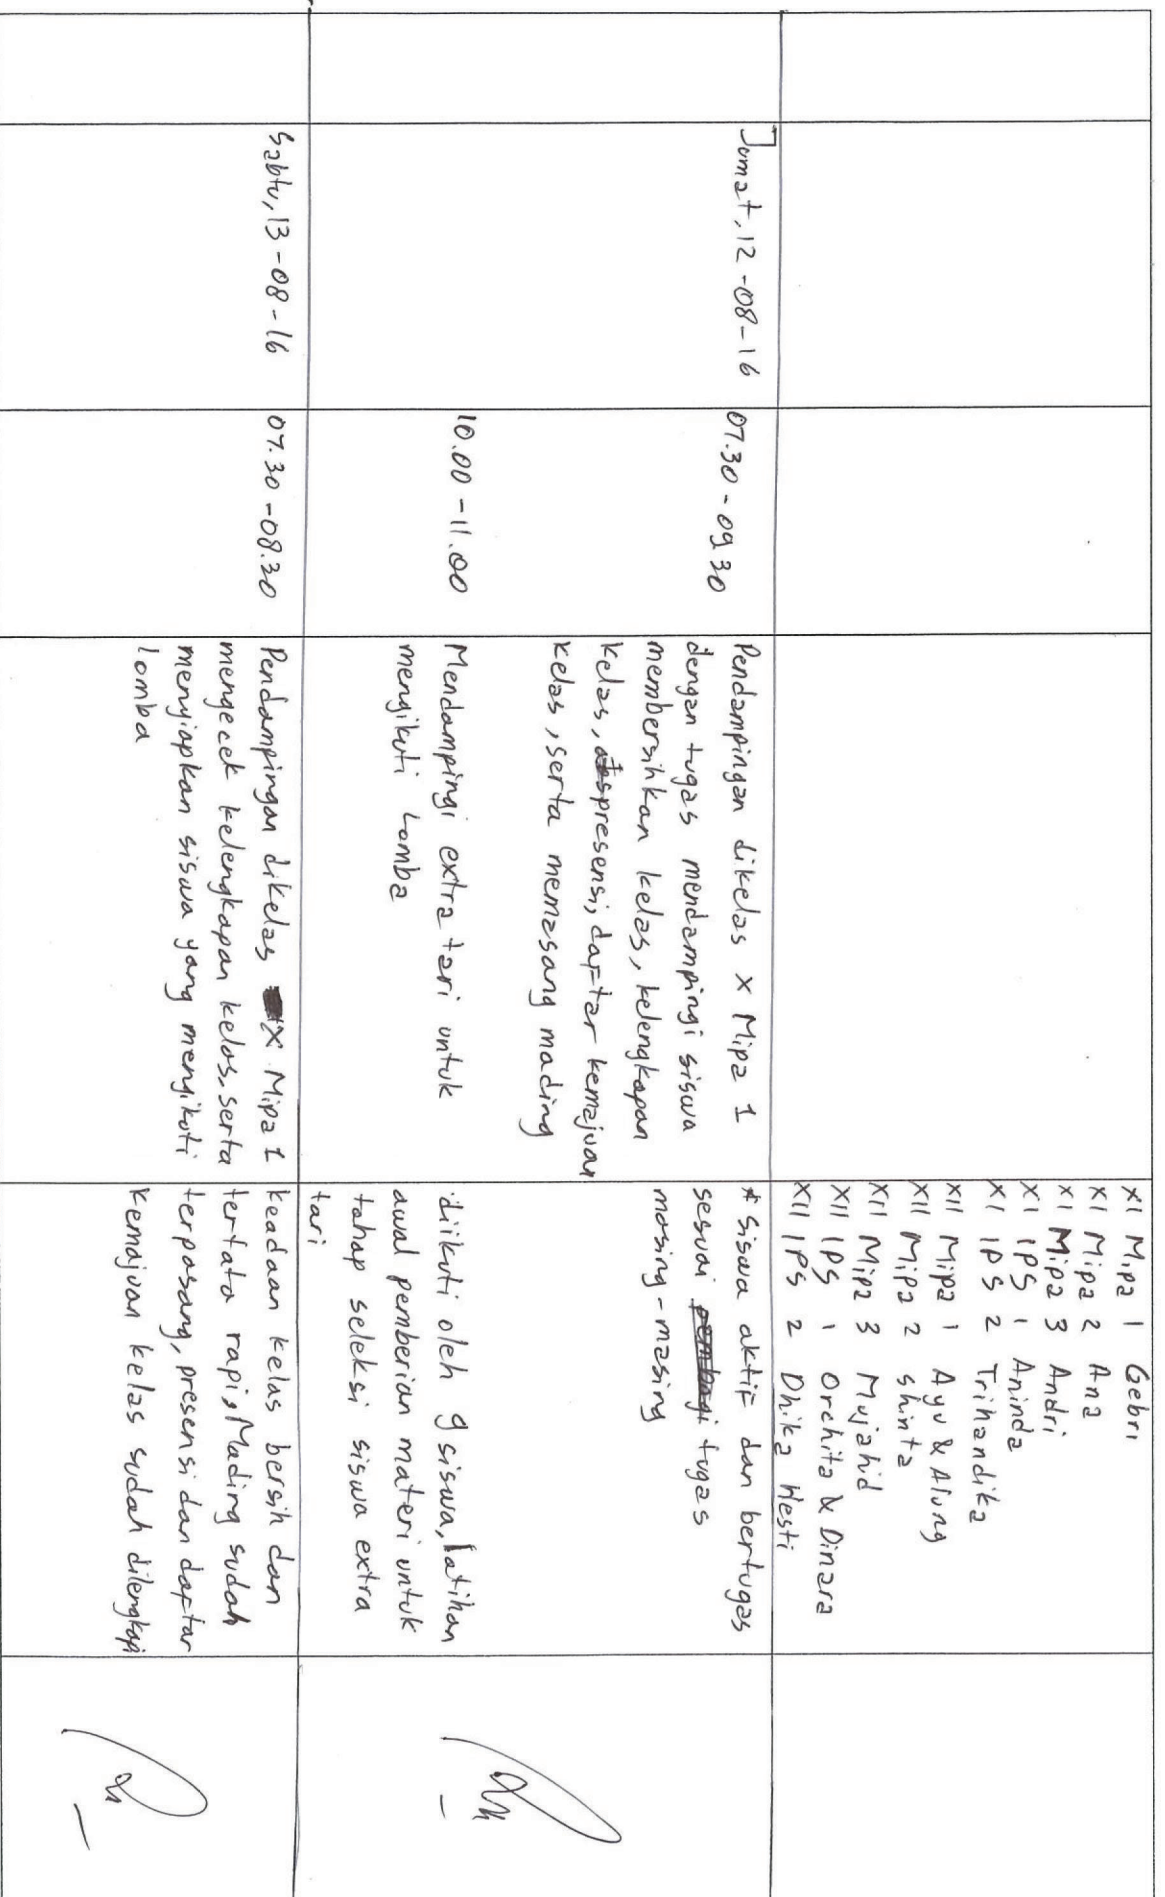 XI Mipa 1 Gebri
XI Mipa 2 Ana
XI Mipa 3 Andri
XI IPS 1 Aninda
XI IPS 2 Trihandika
XII Mipa 1 Ayu & Alung
XII Mipa 2 Shinta
XII Mipa 3 Mujahid
XII IPS 1 Orchita & Dinara
XII IPS 2 Dhika Hesti
Jumat, 12-08-16
07.30 - 09.30
Pendampingan dikelas X Mipa 1
dengan tugas mendampingi siswa
membersihkan kelas, kelengkapan
kelas, presensi, daftar kemajuan
kelas, serta memasang mading
* Siswa aktif dan bertugas
sesuai tugas
masing-masing
10.00 - 11.00
Mendampingi extra tari untuk
mengikuti Lomba
diikuti oleh 9 siswa, latihan
awal pemberian materi untuk
tahap seleksi siswa extra
tari
Sabtu, 13-08-16
07.30 - 08.30
Pendampingan dikelas X Mipa 1
mengecek kelengkapan kelas, serta
menyiapkan siswa yang mengikuti
lomba
keadaan kelas bersih dan
tertata rapi, Mading sudah
terpasang, presensi dan daftar
kemajuan kelas sudah dilengkapi